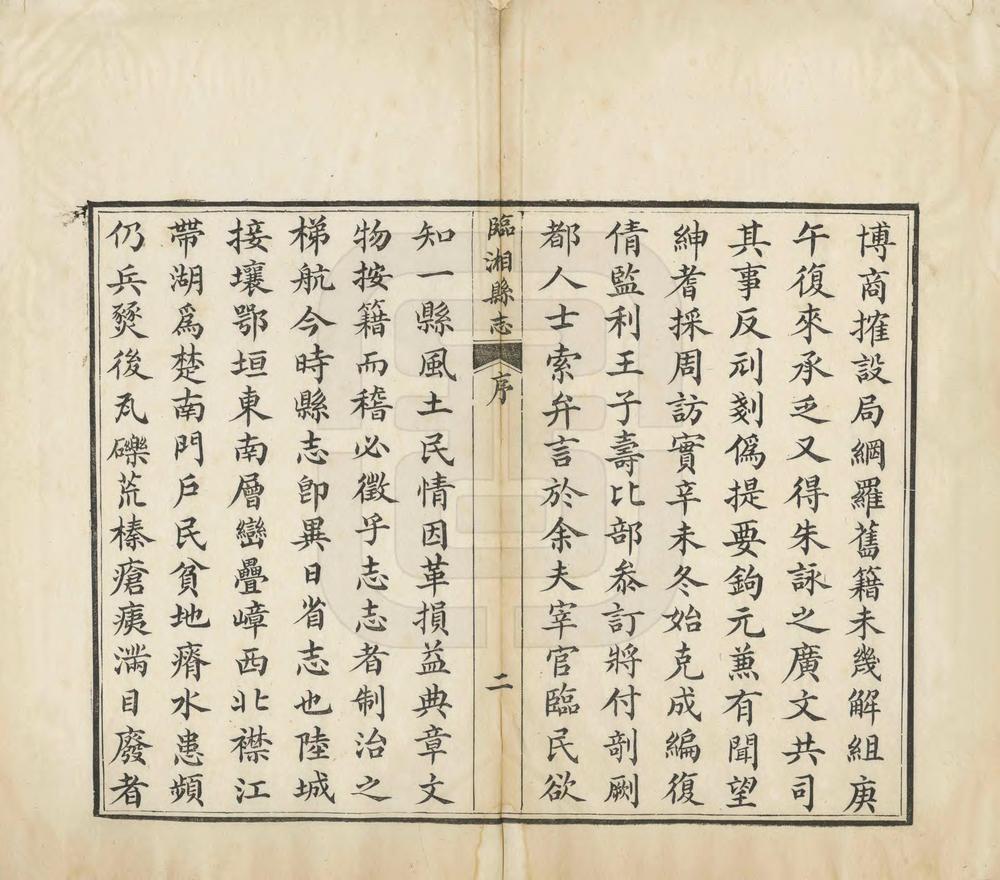 博商搉設局網羅舊籍未幾解組庚
午復來承乏又得朱詠之廣文共司
其事反刓剗僞提要鉤元兼有聞望
紳耆採周訪實辛未冬始克成編復
倩監利王子壽比部叅訂將付剞劂
都人士索弁言於余夫宰官臨民欲
臨湘縣志 序 二
知一縣風土民情因革損益典章文
物按籍而稽必徵乎志志者制治之
梯航今時縣志卽異日省志也陸城
接壤鄂垣東南層巒疊嶂西北襟江
帶湖爲楚南門戶民貧地瘠水患頻
仍兵燹後瓦礫荒榛瘡痍滿目廢者